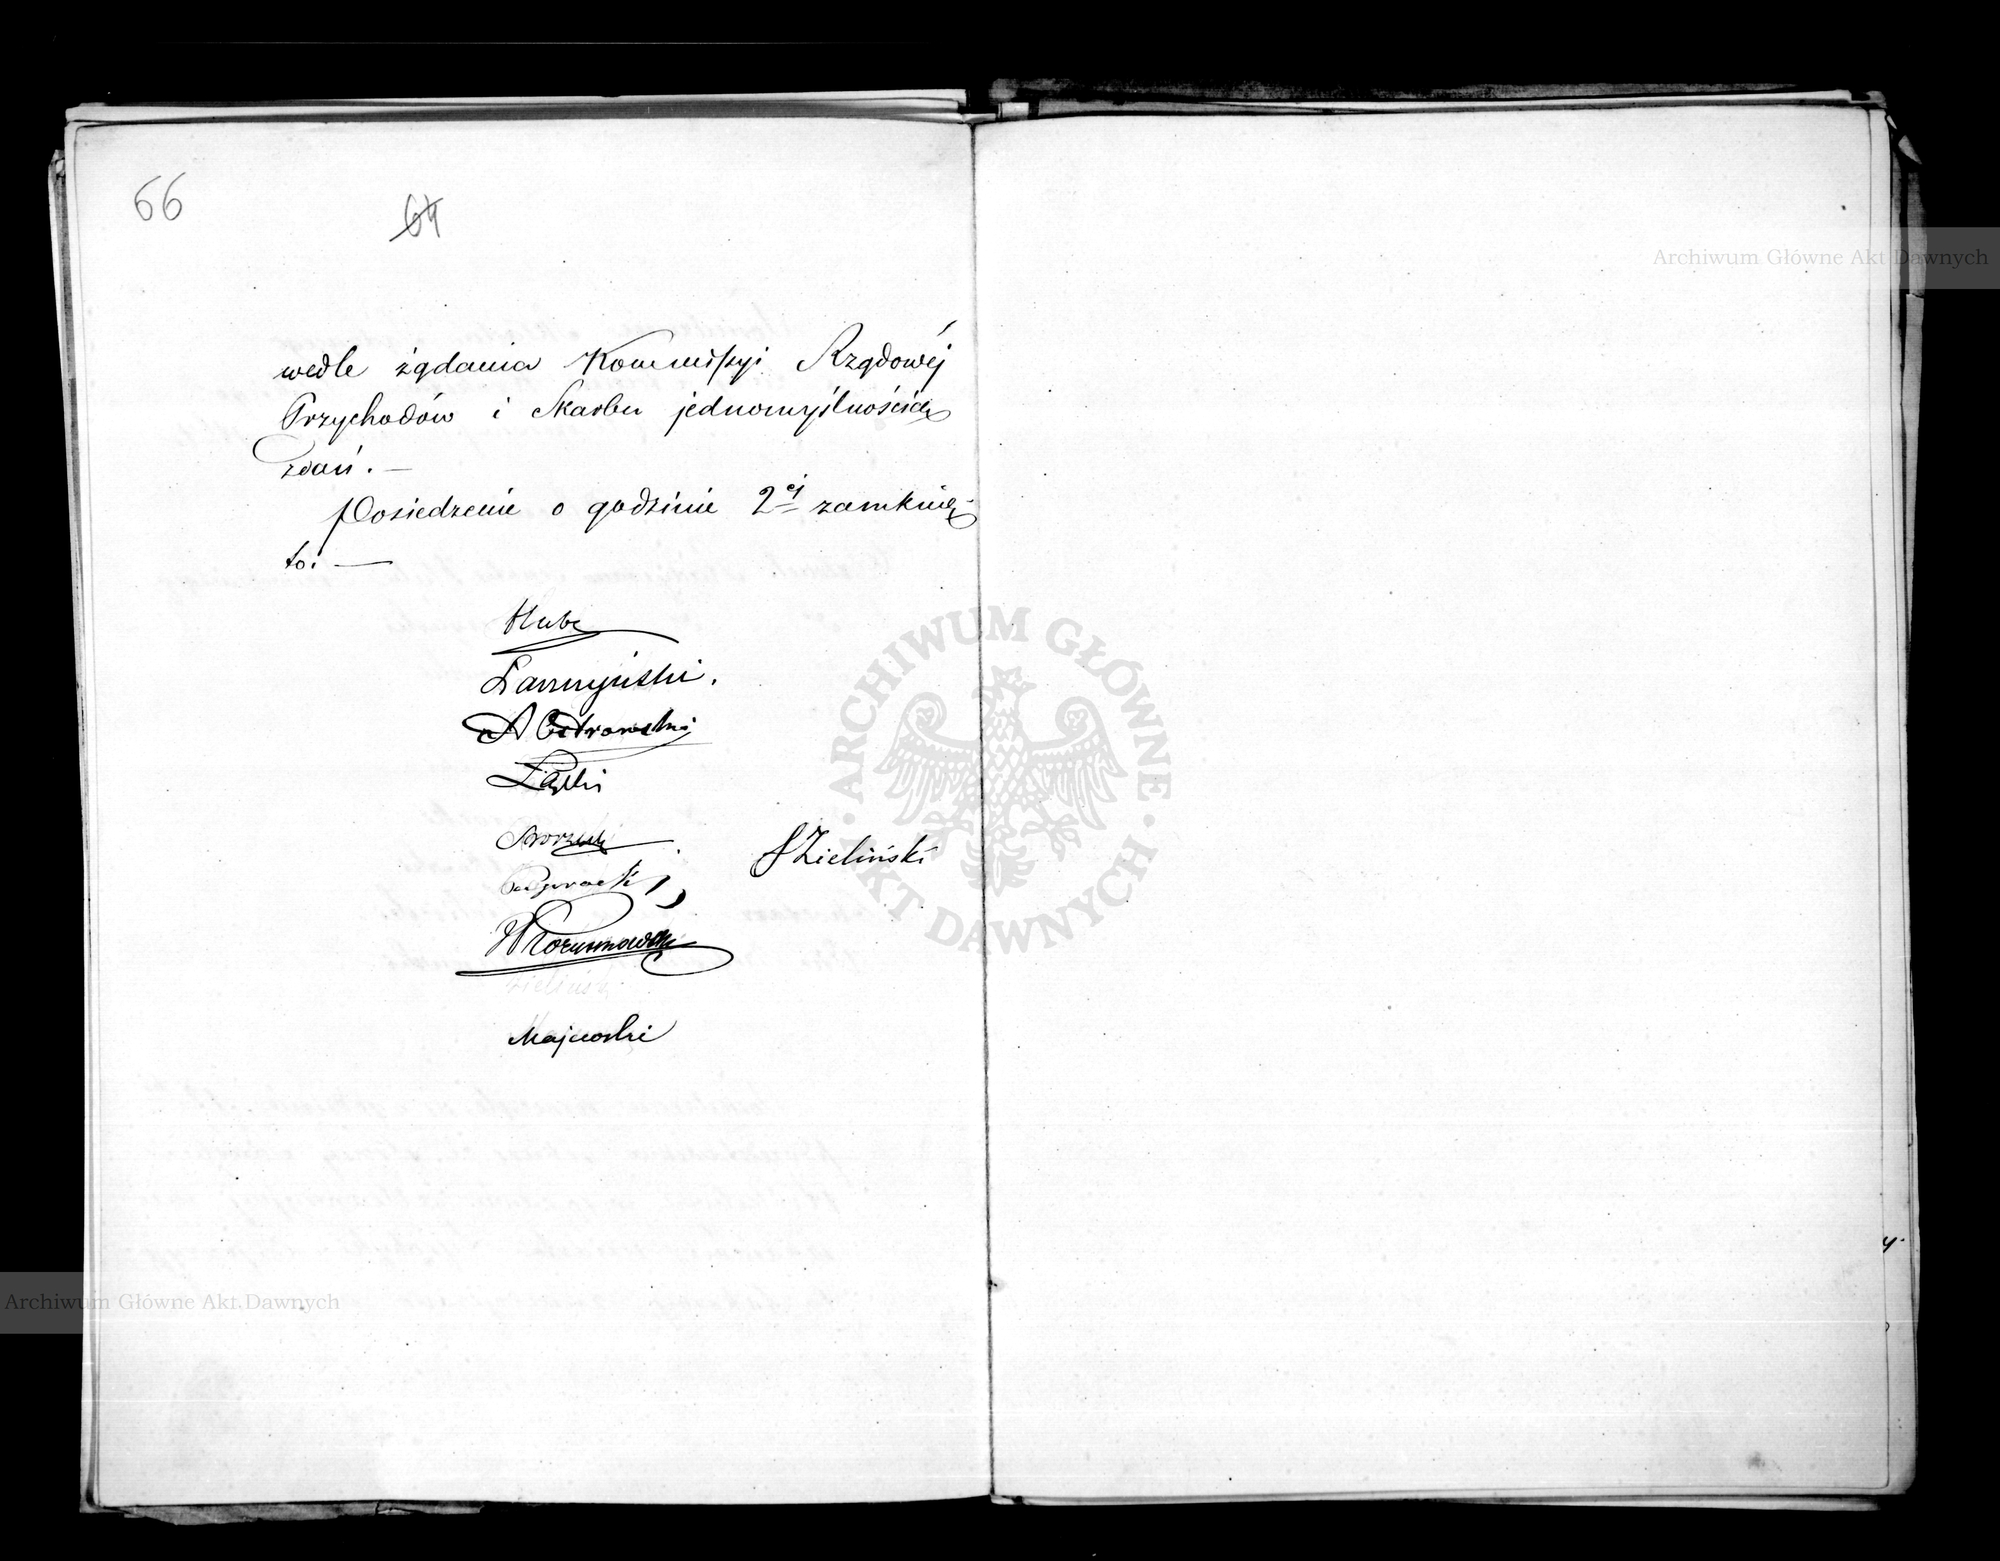 66
64
wedle żądania Kommissyi Rządowéj
Przychodów i Skarbu jednomyślnością
zdań. —
Posiedzenie o godzinie 2ej zamknię-
to. —
Hube
A Ostrowski
Łaski
SZieliński
Zieliński
Majewski
Archiwum Główne Akt Dawnych
Archiwum Główne Akt Dawnych
ARCHIWUM GŁÓWNE AKT DAWNYCH